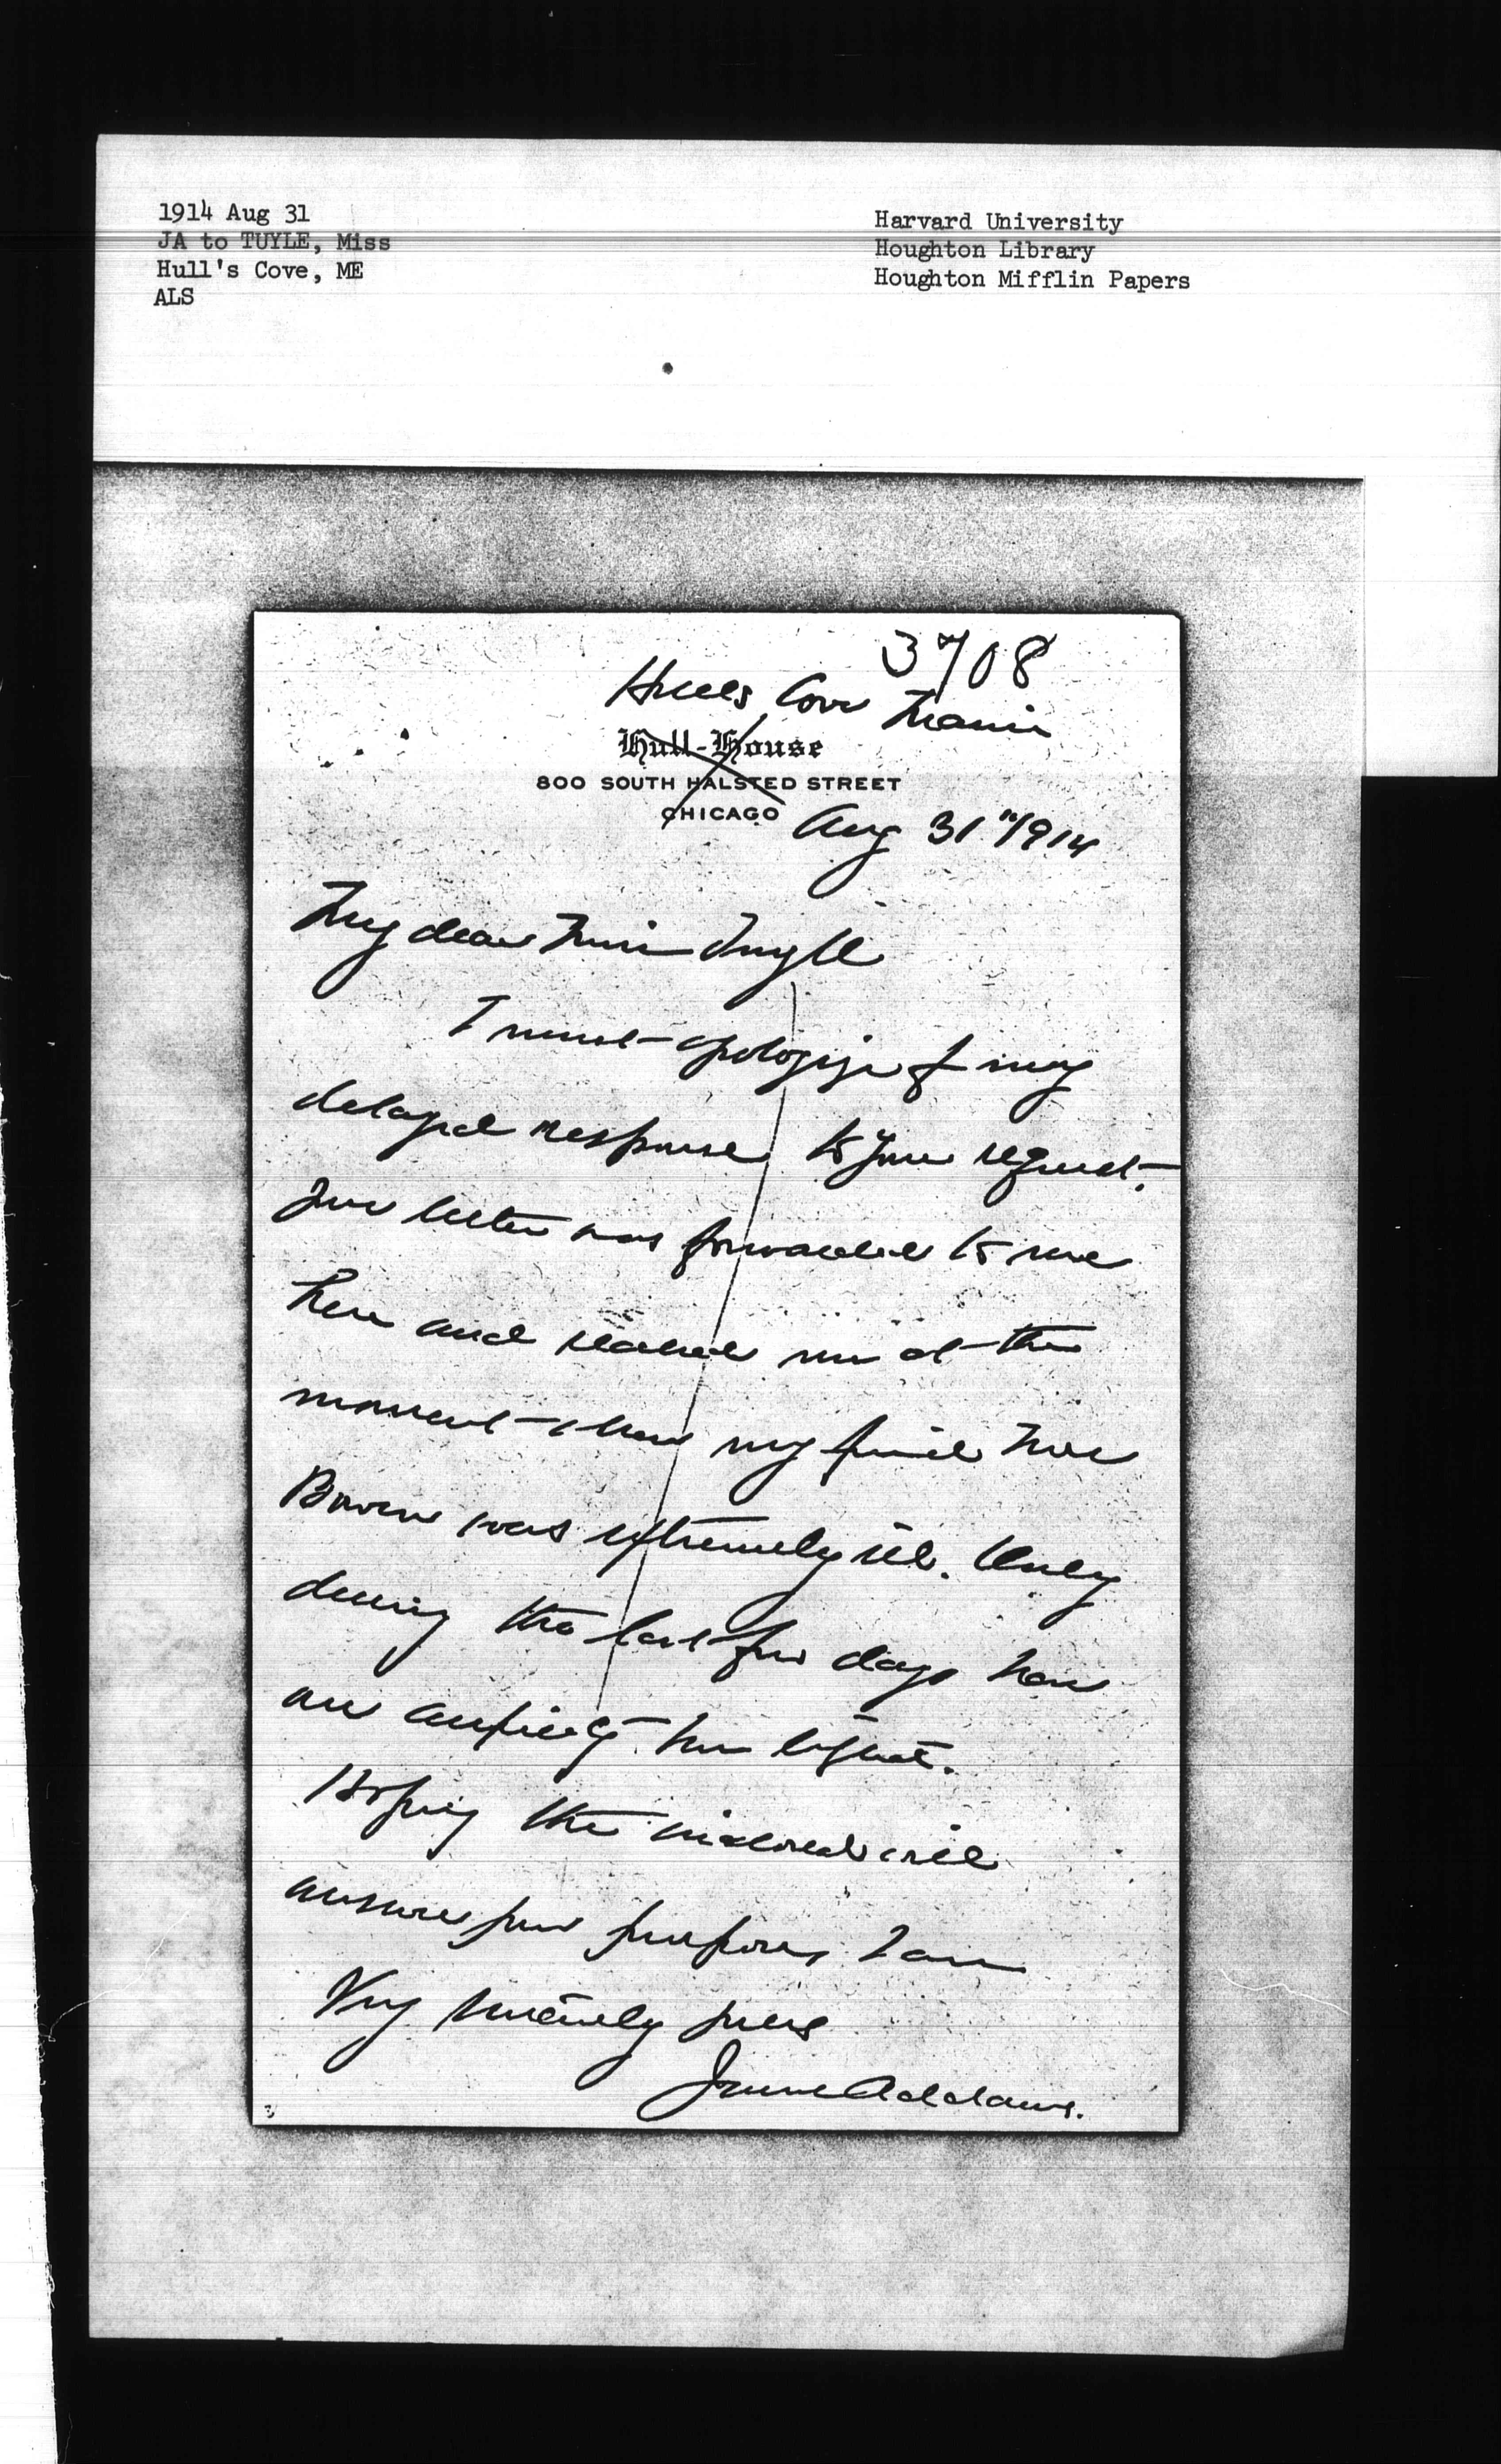 1914 Aug 31
JA to TUYLE, Miss
Hull's Cove, ME
ALS
Harvard University
Houghton Library
Houghton Mifflin Papers
3708
Hulls Cove Maine
Hull-House
800 SOUTH HALSTED STREET
CHICAGO
Aug 31" 1914
My dear Miss Tuyle
I must apologize for my
delayed response to your request.
Your letter was forwarded to me
here and reached me at the
moment when my friend Mrs
Bowen was extremely ill. Only
during the last few days has
our anxiety been lightened.
Hoping the inclosed will
answer your purpose, I am
Very sincerely yours
Jane Addams.